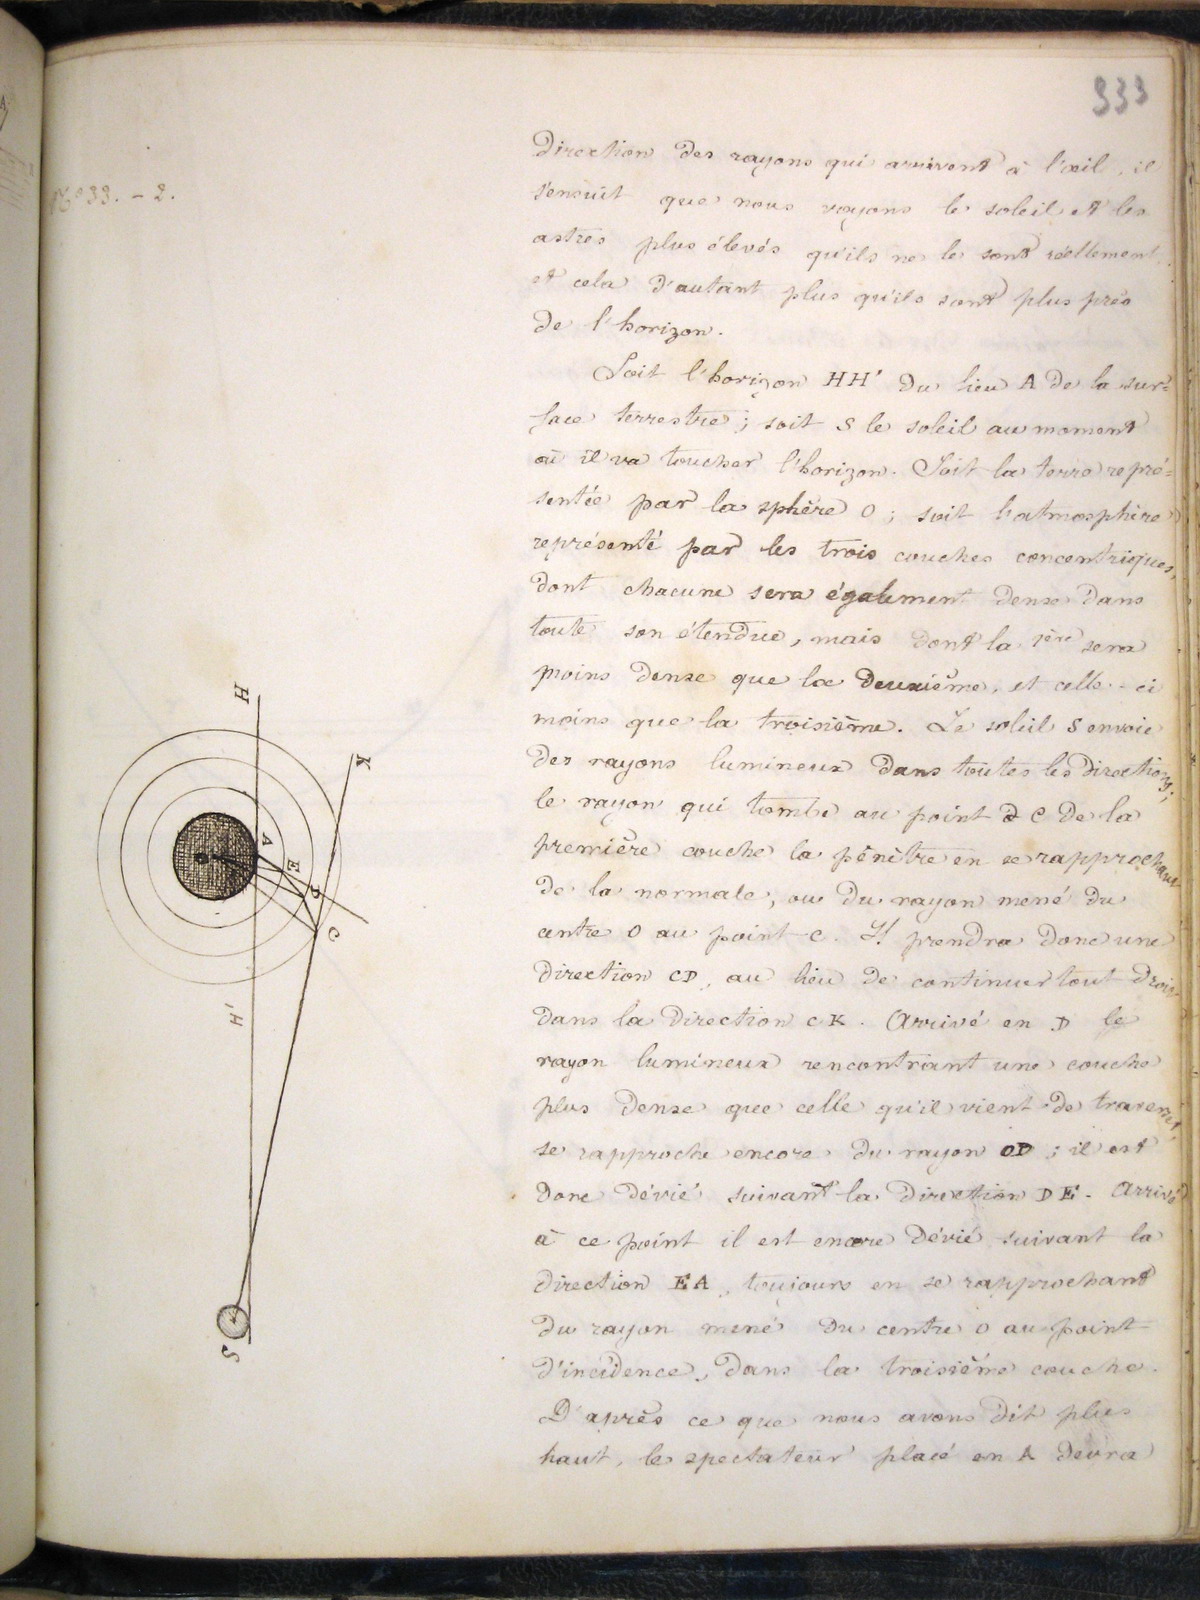 333
N° 33. - 2.
direction des rayons qui arrivent à l'œil, il
s'ensuit que nous voyons le soleil et les
astres plus élevés qu'ils ne le sont réellement,
et cela d'autant plus qu'ils sont plus près
de l'horizon.
Soit l'horizon HH' du lieu A de la sur=
face terrestre ; soit S le soleil au moment
où il va toucher l'horizon. Soit la terre repré=
sentée par la sphère O ; soit l'atmosphère
représenté par les trois couches concentriques,
dont chacune sera également dense dans
toute son étendue, mais dont la 1ère sera
moins dense que la deuxième, et celle-ci
moins que la troisième. Le soleil S envoie
des rayons lumineux dans toutes les directions ;
le rayon qui tombe au point C de la
première couche la pénètre en se rapprochant
de la normale, ou du rayon mené du
centre O au point C. Il prendra donc une
direction CD, au lieu de continuer tout droit
dans la direction CK. Arrivé en D le
rayon lumineux rencontrant une couche
plus dense que celle qu'il vient de traverser,
se rapproche encore du rayon OD ; il est
donc dévié suivant la direction DE. Arrivé
à ce point il est encore dévié suivant la
direction EA, toujours en se rapprochant
du rayon mené du centre O au point
d'incidence, dans la troisième couche.
D'après ce que nous avons dit plus
haut, le spectateur placé en A devra
H
K
A
E
D
C
O
H'
S